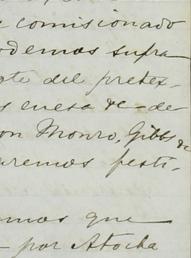 comisionado
odemos sufra
te del pretex-
s cuesa de - de
on Monro, Gibbs
de
uremos festi-
mos que
- por Atocha